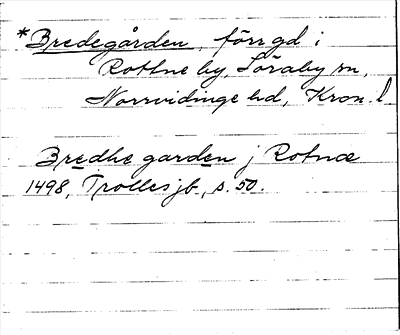 *Bredegården, förr gd i
Rottne by, Söraby sn,
Norrvidinge hd, Kron. l
Bredhe garden j Rotnæ
1498, Trolles jb, s. 50.